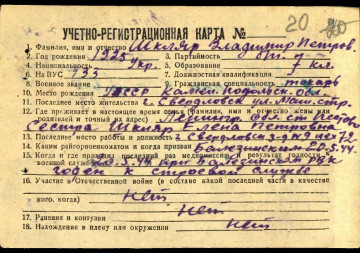 20
УЧЕТНО-РЕГИСТРАЦИОННАЯ КАРТА №
1. Фамилия, имя и отчество Шкляр Владимир Петров.
2. Год рождения 1925 3. Партийность
4. Национальность Укр. 5. Образование 7 кл.
6. № ВУС 133 7. Должностная квалификация
8. Военное звание 9. Гражданская специальность токарь
10. Место рождения УССР Камен. Подольск. обл.
11. Последнее место жительства г. Свердловск ул.
12. Где проживает в настоящее время семья (фамилия, имя и отчество жены или
родителей и точный их адрес)
Сестра Шкляр Елена Петровна
13. Последнее место работы и должность г. Свердловск
14. Каким райгорвоенкоматом и когда призван Балезинским 20.5.44
15. Когда и где проходил последний раз медкомиссию и результат (годность к
военной службе) 20.5.44 при Балезинском РВК
годен к строевой службе
16. Участие в Отечественной войне (в составе какой последней части в качестве
кого, когда) нет
17. Ранения и контузии нет
18. Нахождение в плену или окружении нет